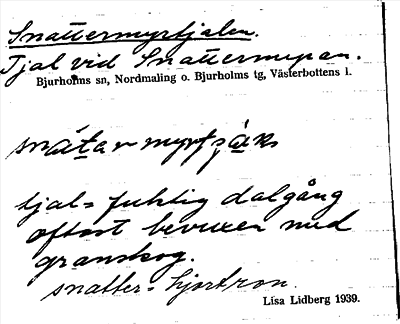 Snattermyrtjälen.
Tjäl vid Snattermyran.
Bjurholms sn, Nordmaling o. Bjurholms tg, Västerbottens l.
tjäl = fuktig dalgång
oftast bevuxen med
granskog.
snatter = hjortron.
Lisa Lidberg 1939.